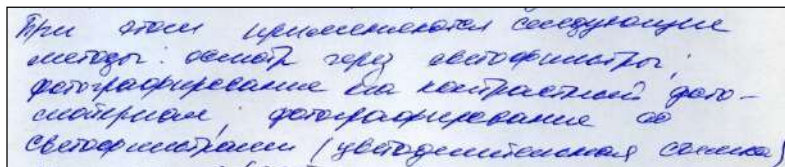 При этом применяются следующие
методы: осмотр через светофильтры;
фотографирование на контрастный фото-
материал; фотографирование со
светофильтрами (цветоделительная съемка)